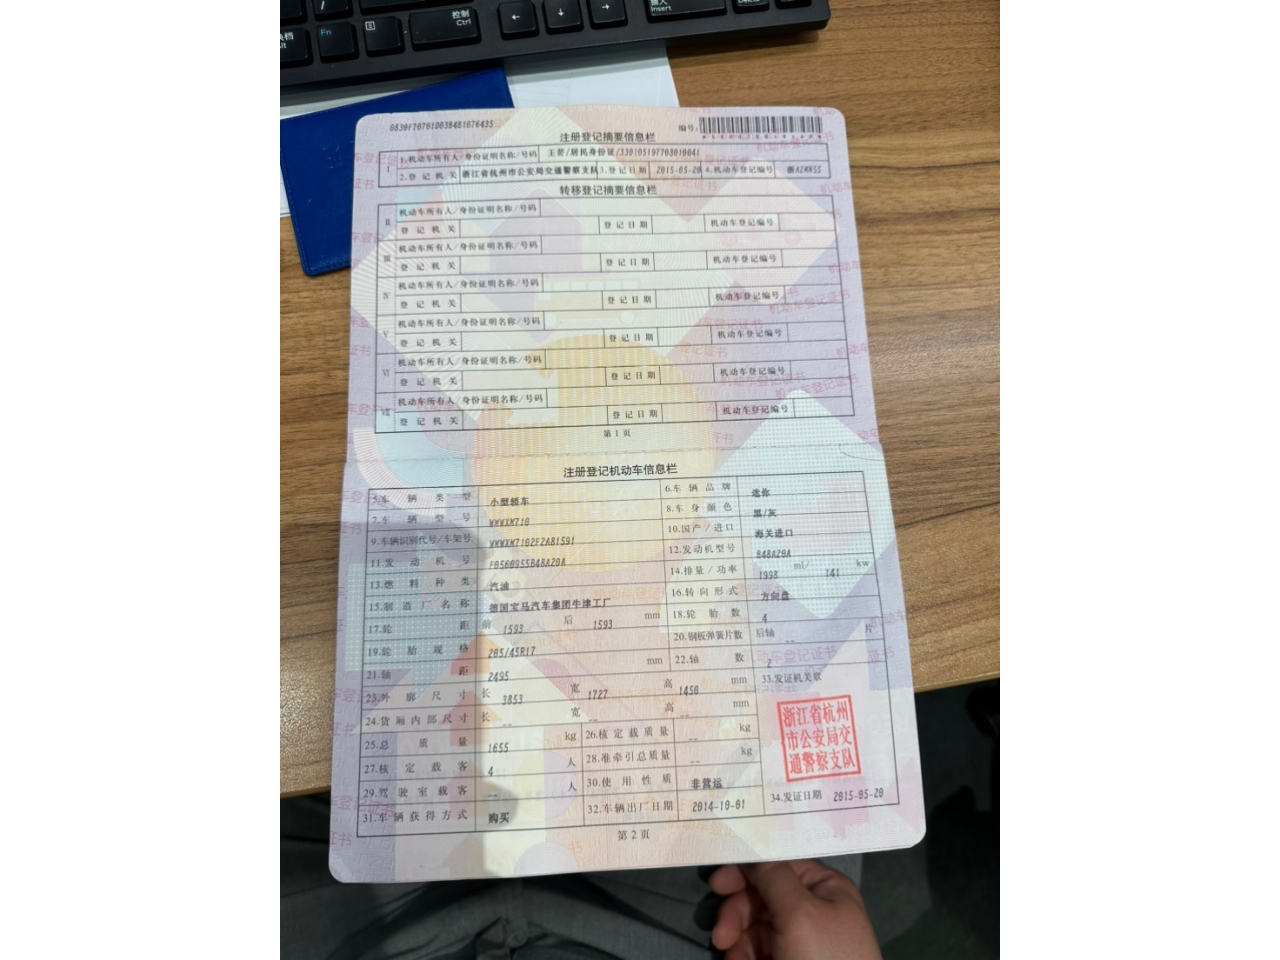 控制
Ctrl
Fn
Insert
注册登记摘要信息栏
编号:
1.机动车所有人/身份证明名称/号码
I
2.登记机关 浙江省杭州市公安局交通警察支队 3.登记日期 2015-05-20 4.机动车登记编号
转移登记摘要信息栏
机动车所有人/身份证明名称/号码
II
登记机关 登记日期 机动车登记编号
机动车所有人/身份证明名称/号码
III
登记机关 登记日期 机动车登记编号
机动车所有人/身份证明名称/号码
IV
登记机关 登记日期 机动车登记编号
机动车所有人/身份证明名称/号码
V
登记机关 登记日期 机动车登记编号
机动车所有人/身份证明名称/号码
VI
登记机关 登记日期 机动车登记编号
机动车所有人/身份证明名称/号码
VII
登记机关 登记日期 机动车登记编号
第1页
注册登记机动车信息栏
5.车辆类型 小型轿车 6.车辆品牌 迷你
7.车辆型号 WMWXM710 8.车身颜色 黑/灰
9.车辆识别代号/车架号 WMWXM7102F2A81591 10.国产/进口 海关进口
11.发动机号 12.发动机型号 B48A20A
13.燃料种类 汽油 14.排量/功率 1998 ml/ 141 kw
15.制造厂名称 德国宝马汽车集团牛津工厂 16.转向形式 方向盘
17.轮距 前 1593 后 1593 mm 18.轮胎数 4
19.轮胎规格 205/45R17 20.钢板弹簧片数 后轴 -- 片
21.轴距 2495 mm 22.轴数 2
23.外廓尺寸 长 3853 宽 1727 高 1450 mm 33.发证机关章
24.货厢内部尺寸 长 -- 宽 -- 高 -- mm
25.总质量 1655 kg 26.核定载质量 -- kg
27.核定载客 4 人 28.准牵引总质量 -- kg
29.驾驶室载客 -- 人 30.使用性质 非营运
31.车辆获得方式 购买 32.车辆出厂日期 2014-10-01 34.发证日期 2015-05-20
浙江省杭州
市公安局交
通警察支队
第2页